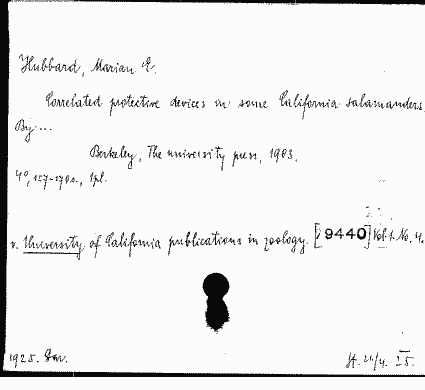 Hubbard, Marian E.
Correlated protective devices in some California salamanders.
By ...
Berkeley, The university press, 1903.
4°, 157-170 s., 1 pl.
v. University of California publications in zoology. [9440] Vol. 1. No. 4.
1925.